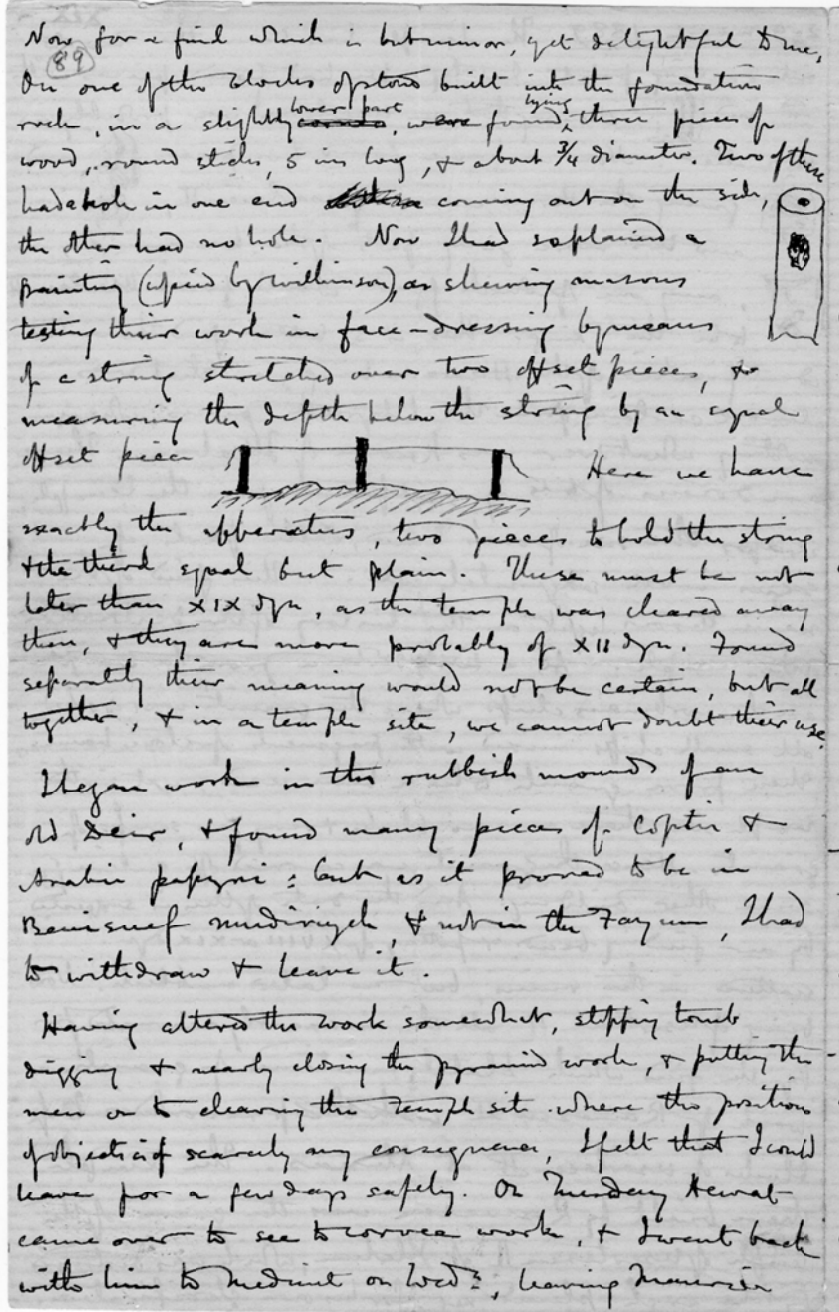 Now for a find which is but minor, yet delightful to me.
(89)
On one of the blocks of stone built into the foundation
rock, in a slightly lower part, were found lying three pieces of
wood, round sticks, 5 ins long, & about 3/4 diameter. Two of these
had a hole in one end coming out on the side,
the other had no hole. Now I had explained a
painting (copied by Wilkinson), as shewing masons
testing their work in face-dressing by means
of a string stretched over two offset pieces, &
measuring the depth below the string by an equal
offset piece Here we have
exactly the apparatus, two pieces to hold the string
& the third equal but plain. These must be not
later than XIX dyn, as the temple was cleared away
then, & they are more probably of XII dyn. Found
separately their meaning would not be certain, but all
together, & in a temple site, we cannot doubt their use.
I began work in the rubbish mounds of an
old Deir, & found many pieces of Coptic &
Arabic papyri: but as it proved to be in
Benisuef mudiriyeh, & not in the Fayum, I had
to withdraw & leave it.
Having altered the work somewhat, stopping tomb
digging & nearly closing the pyramid work, & putting the
men on to clearing the temple site where the position
of objects is of scarcely any consequence, I felt that I could
leave for a few days safely. On Tuesday Hewat
came over to see to corvee work, & I went back
with him to Medinet on Wed?, leaving